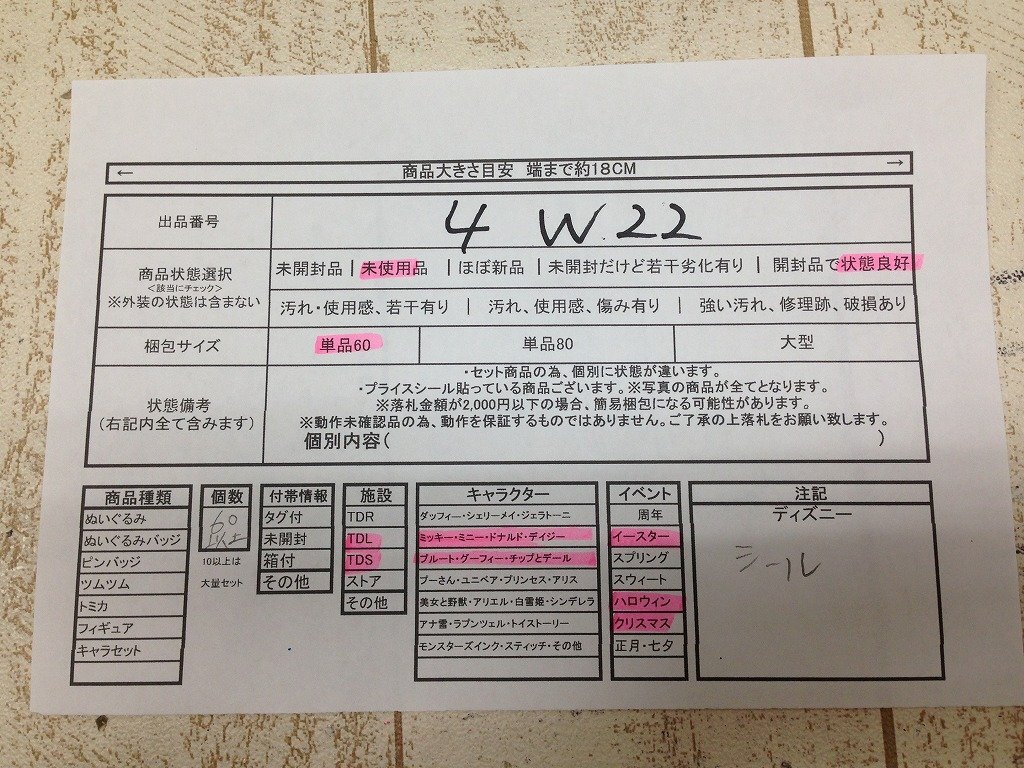 ← 商品大きさ目安 端まで約18CM →
出品番号 4 W.22
商品状態選択
<該当にチェック>
※外装の状態は含まない
未使用品 | 未使用品 | ほぼ新品 | 未開封だけど若干劣化有り | 開封品で状態良好
汚れ・使用感、若干有り | 汚れ、使用感、傷み有り | 強い汚れ、修理跡、破損あり
梱包サイズ 単品60 単品80 大型
状態備考
(右記内全て含みます)
・セット商品の為、個別に状態が違います。
・プライスシール貼っている商品ございます。※写真の商品が全てとなります。
※落札金額が2,000円以下の場合、簡易梱包になる可能性があります。
※動作未確認品の為、動作を保証するものではありません。ご了承の上落札をお願い致します。
個別内容( )
商品種類
ぬいぐるみ
ぬいぐるみバッジ
ピンバッジ
ツムツム
トミカ
フィギュア
キャラセット
個数
60
以上
10以上は
大量セット
付帯情報
タグ付
未開封
箱付
その他
施設
TDR
TDL
TDS
ストア
その他
キャラクター
ダッフィー・シェリーメイ・ジェラトーニ
ミッキー・ミニー・ドナルド・デイジー
プルート・グーフィー・チップとデール
プーさん・ユニベア・プリンセス・アリス
美女と野獣・アリエル・白雪姫・シンデレラ
アナ雪・ラプンツェル・トイストーリー
モンスターズインク・スティッチ・その他
イベント
周年
イースター
スプリング
スウィート
ハロウィン
クリスマス
正月・七夕
注記
ディズニー
シール